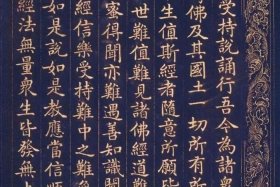 受持說誦行吾今為諸
佛及其國土一切所有所
生值斯經者隨意所願皆
世難值難見諸佛經道難
蜜得聞亦難遇善知識聞
經信樂受持難中之難
如是說如是教應當信順
經法無量眾生皆發無上